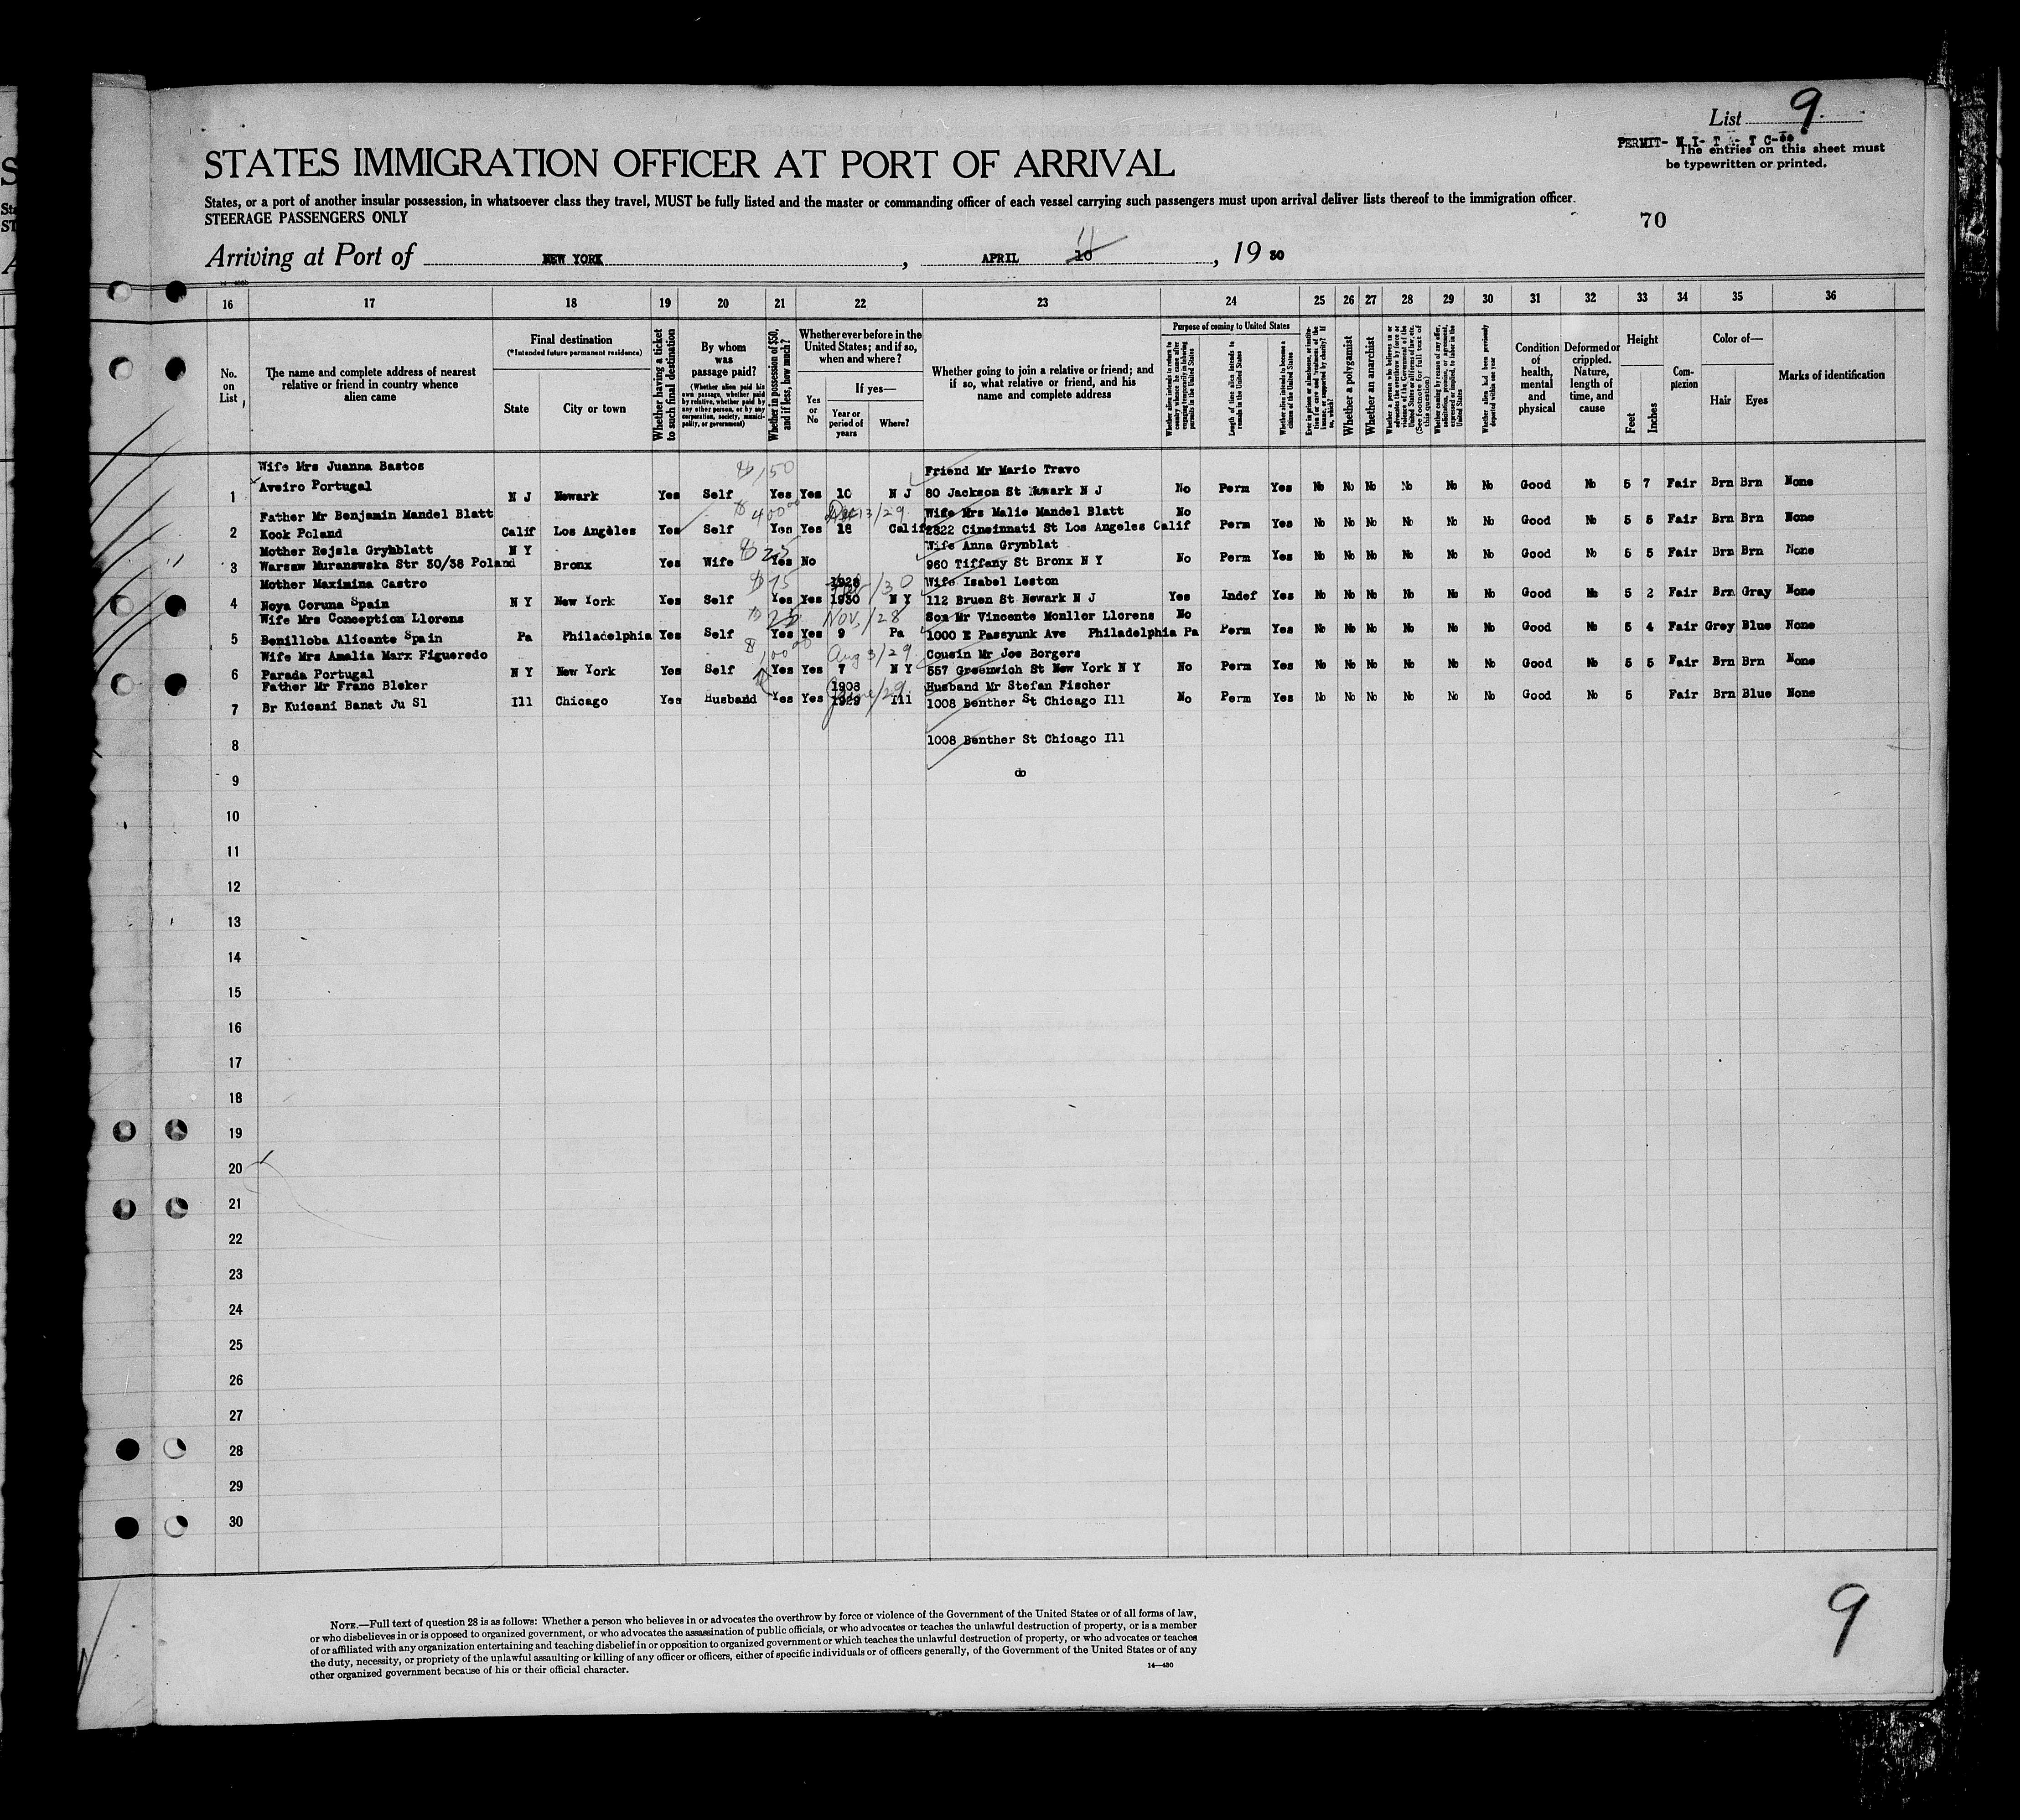 List 9
PERMIT-
The entries on this sheet must
be typewritten or printed.
STATES IMMIGRATION OFFICER AT PORT OF ARRIVAL
States, or a port of another insular possession, in whatsoever class they travel, MUST be fully listed and the master or commanding officer of each vessel carrying such passengers must upon arrival deliver lists thereof to the immigration officer.
STEERAGE PASSENGERS ONLY
70
Arriving at Port of NEW YORK, APRIL 10 11, 19 30
16 17 18 19 20 21 22 23 24 25 26 27 28 29 30 31 32 33 34 35 36
No.
on
List
The name and complete address of nearest
relative or friend in country whence
alien came
Final destination
(*Intended future permanent residence)
State
City or town
Whether having a ticket
to such final destination
By whom
was
passage paid?
(Whether alien paid his
own passage, whether paid
by relative, whether paid by
any other person, or by any
corporation, society, munici-
pality, or government)
Whether in possession of $50,
and if less, how much?
Whether ever before in the
United States; and if so,
when and where?
Yes
or
No
If yes—
Year or
period of
years
Where?
Whether going to join a relative or friend; and
if so, what relative or friend, and his
name and complete address
Purpose of coming to United States
Whether alien intends to return to
country whence he came after
engaging temporarily in laboring
pursuits in the United States
Length of time alien intends to
remain in the United States
Whether alien intends to become a
citizen of the United States
Ever in prison or almshouse, or institu-
tion for care and treatment of the
insane, or supported by charity? If
so, which?
Whether a polygamist
Whether an anarchist
Whether a person who believes in or
advocates the overthrow by force or
violence of the Government of the
United States or all forms of law, etc.
(See footnote for full text of
this question)
Whether coming by reason of any offer,
solicitation, promise, or agreement,
expressed or implied, to labor in the
United States
Whether alien had been previously
deported within one year
Condition
of
health,
mental
and
physical
Deformed or
crippled.
Nature,
length of
time, and
cause
Height
Feet
Inches
Com-
plexion
Color of—
Hair
Eyes
Marks of identification
Wife Mrs Juanna Bastos $150 Friend Mr Mario Travo
1 Aveiro Portugal N J Newark Yes Self Yes Yes 10 N J 80 Jackson St Newark N J No Perm Yes No No No No No No Good No 5 7 Fair Brn Brn None
Father Mr Benjamin Mandel Blatt $400 00 13/29 Wife Mrs Malie Mandel Blatt No
2 Kook Poland Calif Los Angeles Yes Self Yes Yes 18 Calif 2822 Cincinnati St Los Angeles Calif Perm Yes No No No No No No Good No 5 5 Fair Brn Brn None
Mother Rejsla Grynblatt N Y $25 Wife Anna Grynblat
3 Warsaw Muranswska Str 30/38 Poland Bronx Yes Wife Yes No 960 Tiffany St Bronx N Y No Perm Yes No No No No No No Good No 5 5 Fair Brn Brn None
Mother Maximina Castro $75 1928 /30 Wife Isabel Leston
4 Noya Coruna Spain N Y New York Yes Self Yes Yes 1930 N Y 112 Bruen St Newark N J Yes Indef Yes No No No No No No Good No 5 2 Fair Brn Gray None
Wife Mrs Conception Llorens $25 Nov./28 Son Mr Vincente Monllor Llorens No
5 Benilloba Alicante Spain Pa Philadelphia Yes Self Yes Yes 9 Pa 1000 E Passyunk Ave Philadelphia Pa Perm Yes No No No No No No Good No 5 4 Fair Grey Blue None
Wife Mrs Amalia Marx Figueredo $100 00 Aug 3/29 Cousin Mr Joe Borgers
6 Parada Portugal N Y New York Yes Self Yes Yes 7 N Y 557 Greenwich St New York N Y No Perm Yes No No No No No No Good No 5 5 Fair Brn Brn None
Father Mr Franc Bleker 1908 June/29 Husband Mr Stefan Fischer
7 Br Kuicani Banat Ju Sl Ill Chicago Yes Husband Yes Yes 1929 Ill 1008 Benther St Chicago Ill No Perm Yes No No No No No No Good No 5 Fair Brn Blue None
8 1008 Benther St Chicago Ill
9 do
10
11
12
13
14
15
16
17
18
19
20
21
22
23
24
25
26
27
28
29
30
NOTE.—Full text of question 28 is as follows: Whether a person who believes in or advocates the overthrow by force or violence of the Government of the United States or of all forms of law,
or who disbelieves in or is opposed to organized government, or who advocates the assassination of public officials, or who advocates or teaches the unlawful destruction of property, or is a member
of or affiliated with any organization entertaining and teaching disbelief in or opposition to organized government or which teaches the unlawful destruction of property, or who advocates or teaches
the duty, necessity, or propriety of the unlawful assaulting or killing of any officer or officers, either of specific individuals or of officers generally, of the Government of the United States or of any
other organized government because of his or their official character.
14—430
9